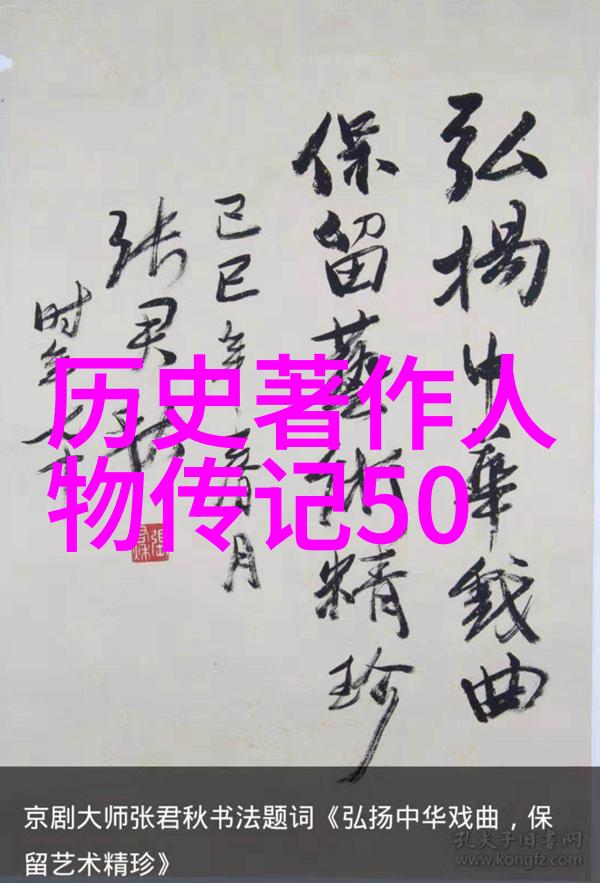 弘揚中華戲曲
保留藝術精珍
己巳年月
张君秋
时年七十
历史著作人
物传记50
京剧大师张君秋书法题词《弘扬中华戏曲，保
留艺术精珍》
孔夫子旧书网
www.kongfz.com